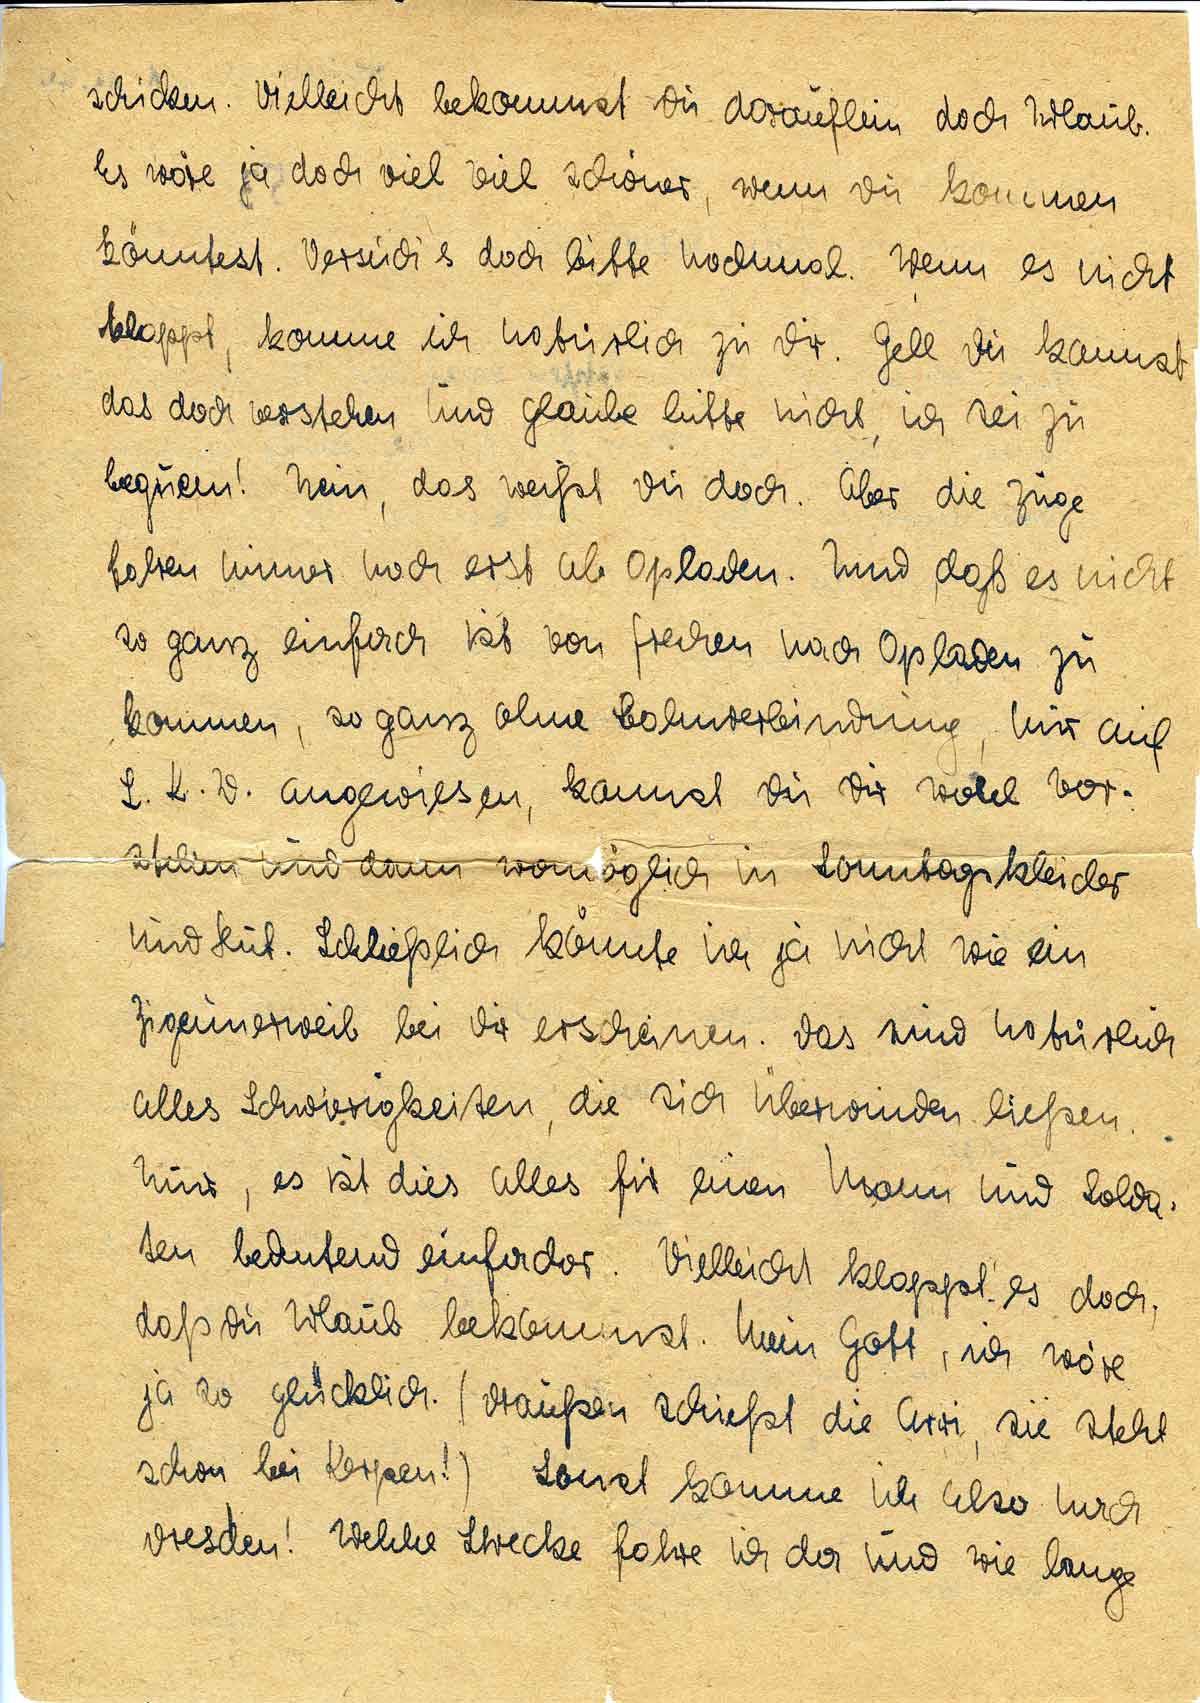 schicken. Vielleicht bekommst Du daraufhin doch Urlaub.
Es wäre ja doch viel viel schöner, wenn Du kommen
könntest. Versuch's doch bitte nochmal. Wenn es nicht
klappt, komme ich natürlich zu Dir. Gell Du kannst
das doch verstehen und glaube bitte nicht, ich sei zu
bequem! Nein, das weißt Du doch. Aber die Züge
fahren immer noch erst ab Opladen. Und daß es nicht
so ganz einfach ist von Frechen nach Opladen zu
kommen, so ganz ohne Bahnverbindung, nur auf
L. K. W. angewiesen, kannst Du Dir wohl vor-
stellen und dann womöglich in Sonntagskleider
und Hut. Schließlich könnte ich ja nicht wie ein
Zigeunerweib bei Dir erscheinen. Das sind natürlich
alles Schwierigkeiten, die sich überwinden ließen.
Nur, es ist dies alles für einen Mann und Solda-
ten bedeutend einfacher. Vielleicht klappt es doch,
daß Du Urlaub bekommst. Mein Gott, ich wäre
ja so glücklich. (Draußen schießt die Arri, sie steht
schon bei Kerpen!) Sonst komme ich also nach
Dresden! Welche Strecke fahre ich da und wie lange